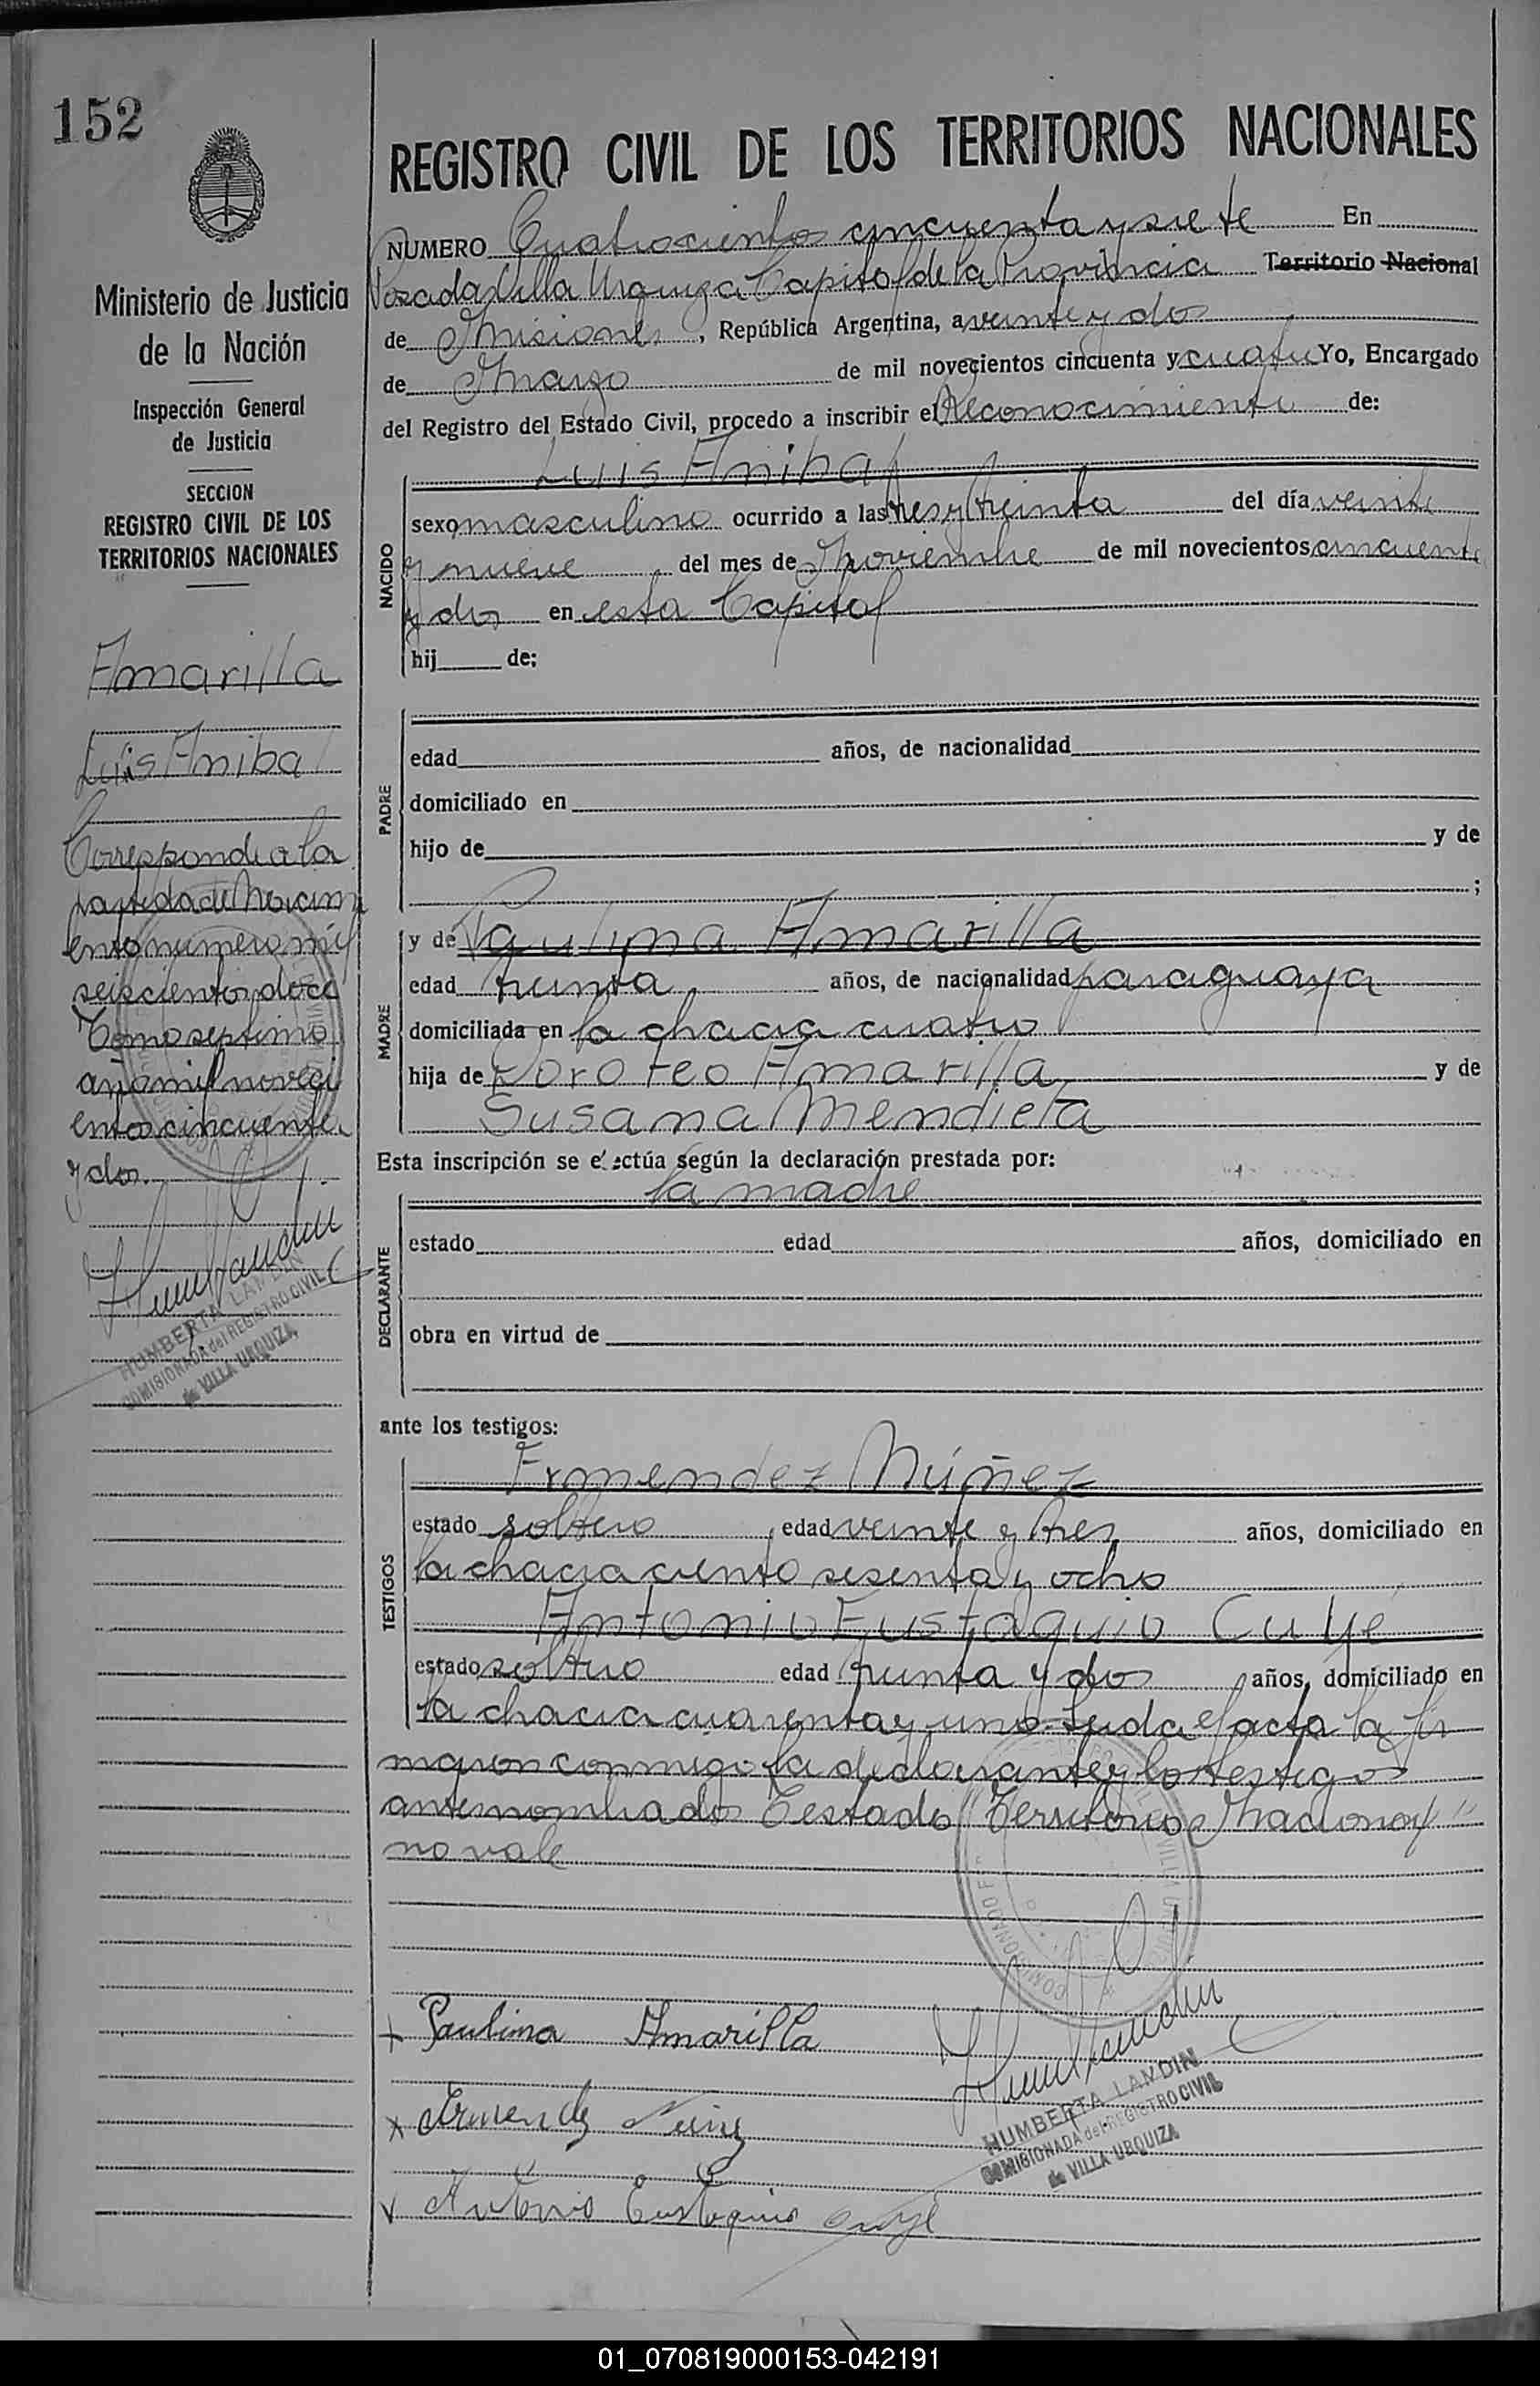 152
Ministerio de Justicia
de la Nación
Inspección General
de Justicia
SECCION
REGISTRO CIVIL DE LOS
TERRITORIOS NACIONALES
Amarilla
Luis Anibal
Corresponde a la
partida de Nacimi
ento numero mil
seiscientos doce
Tomo septimo
año mil noveci
entos cincuenta
y dos.
HUMBERTA LANDIN
COMISIONADA del REGISTRO CIVIL
de VILLA URQUIZA
REGISTRO CIVIL DE LOS TERRITORIOS NACIONALES
NUMERO Cuatrocientos cincuenta y siete En
Posadas Villa Urquiza Capital de la Provincia Territorio Nacional
de Misiones, República Argentina, a veinte y dos
de Marzo de mil novecientos cincuenta y cuatro Yo, Encargado
del Registro del Estado Civil, procedo a inscribir el Reconocimiento de:
Luis Anibal
NACIDO
sexo masculino ocurrido a las tres y treinta del día veinte
y nueve del mes de Noviembre de mil novecientos cincuenta
y dos en esta Capital
hij de:
PADRE
edad años, de nacionalidad
domiciliado en
hijo de y de
;
MADRE
y de Paulina Amarilla
edad treinta años, de nacionalidad paraguaya
domiciliada en la chacra cuatro
hija de Doroteo Amarilla y de
Susana Mendieta
Esta inscripción se efectúa según la declaración prestada por:
la madre
DECLARANTE
estado edad años, domiciliado en
obra en virtud de
ante los testigos:
TESTIGOS
Ermendez Núñez
estado soltero edad veinte y tres años, domiciliado en
la chacra ciento sesenta y ocho
Antonio Eustaquio Cuyé
estado soltero edad treinta y dos años, domiciliado en
la chacra cuarenta y uno. Leida el acta la fir
maron conmigo la declarante y los testigos
antenombrados Testado "Territorio Nacional"
no vale
x Paulina Amarilla
x Ermendez Nuñez
x Antonio Eustaquio Cuyé
HUMBERTA LANDIN
COMISIONADA del REGISTRO CIVIL
de VILLA URQUIZA
01_070819000153-042191